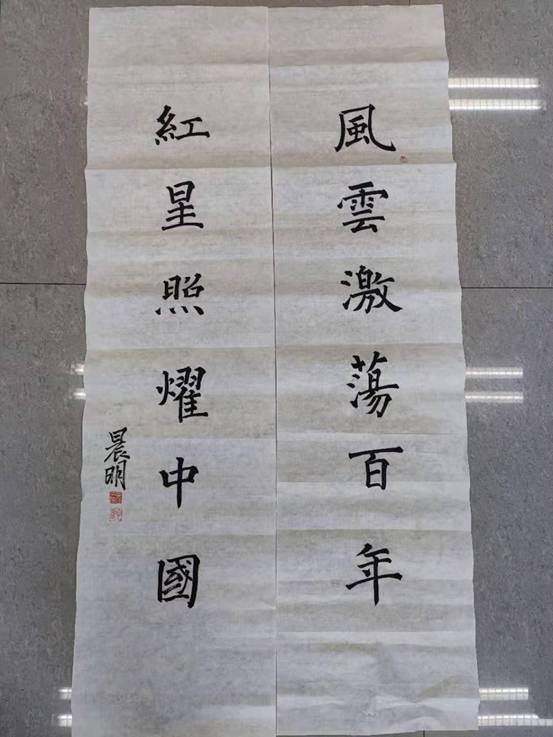 風雲激蕩百年
紅星照耀中國
晨明